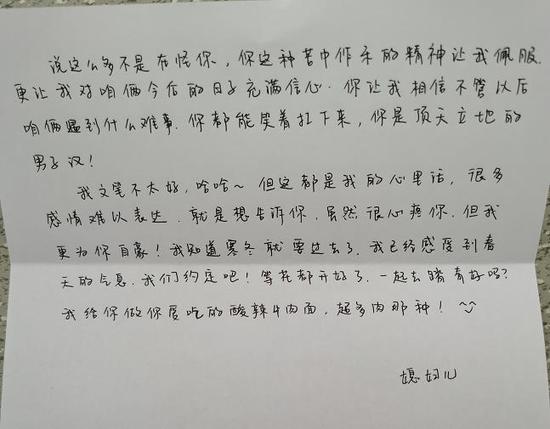 说这么多不是在怪你，你这种苦中作乐的精神让我佩服
更让我对咱俩今后的日子充满信心．你让我相信不管以后
咱俩遇到什么难事．你都能笑着扛下来，你是顶天立地的
男子汉！
我文笔不太好，哈哈～但这都是我的心里话，很多
感情难以表达．就是想告诉你，虽然很心疼你．但我
更为你自豪！我知道寒冬就要过去了．我已经感受到春
天的气息．我们约定吧！等花都开好了．一起去踏青好吗？
我给你做你爱吃的酸辣牛肉面，超多肉那种！
媳妇儿